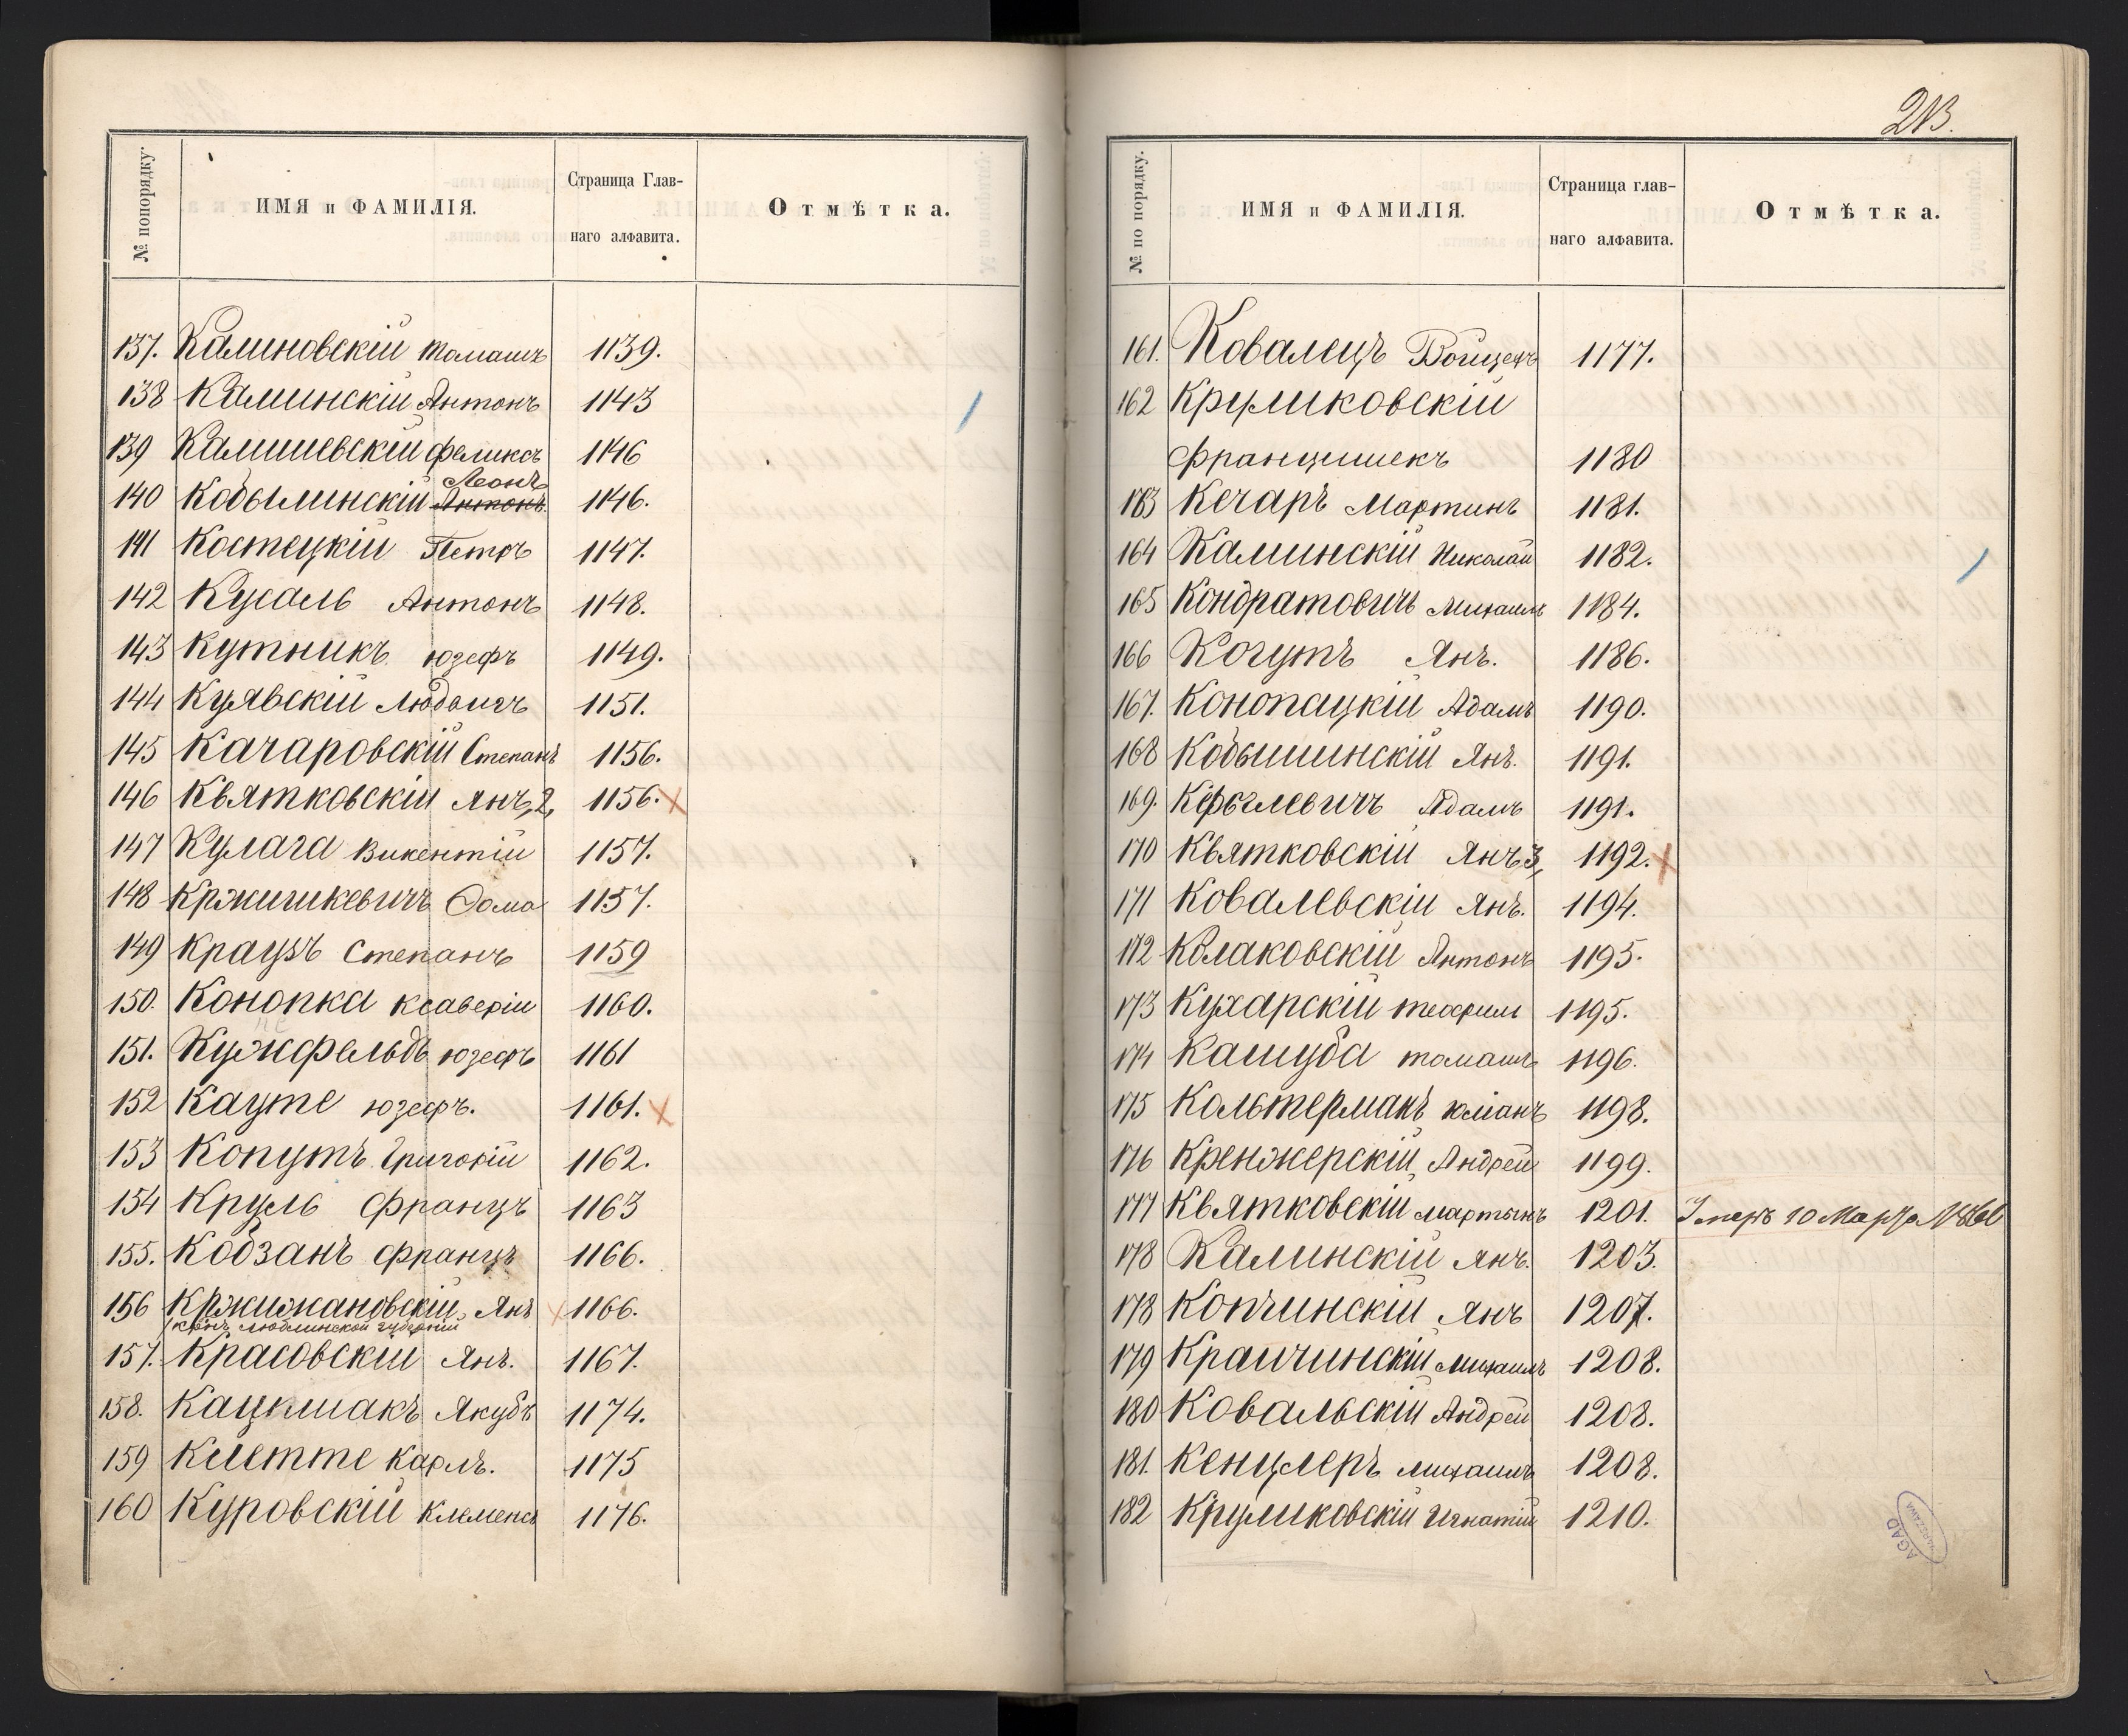 № попорядку.
ИМЯ и ФАМИЛІЯ.
Страница Глав-
наго алфавита.
Отмѣтка.
137. Калиновскій Томашъ 1139.
138 Калинскій Антонъ 1143
139 Калишевскій Феликсъ 1146
Леонъ
140 Кобылинскій Антонъ. 1146.
141 Костецкій Петръ 1147.
142 Кусаль Антонъ 1148.
143 Кутникъ Юзефъ 1149.
144 Куявскій Людвигъ 1151.
145 Качаровскій Степанъ 1156.
146 Квятковскій Янъ, 2, 1156.
147 Кулага Викентій 1157.
148 Кржишкевичъ Фома 1157.
149 Краузъ Степанъ 1159
150. Конопка Ксаверій 1160.
151. Кумфельдъ Юзефъ 1161
152 Кауте Юзефъ. 1161.
153 Копутъ Григорій 1162.
154 Круль Францъ 1163
155. Кобзанъ Францъ 1166.
156 Кржижановскій Янъ 1166.
Люблинской губерніи
157. Красовскій Янъ. 1167.
158. Кацпшакъ Якубъ 1174.
159 Клетте Карлъ. 1175
160 Куровскій Клеменсъ 1176.
213.
№ по порядку.
ИМЯ и ФАМИЛІЯ.
Страница глав-
наго алфавита.
Отмѣтка.
161. Ковалецъ Войцехъ 1177.
162 Круликовскій
Францишекъ 1180
163 Кечаръ Мартинъ 1181.
164 Калинскій Николай 1182.
165 Кондратовичъ Михаилъ 1184.
166 Когутъ Янъ. 1186.
167. Конопацкій Адамъ 1190.
168 Кобылинскій Янъ. 1191.
169. Адамъ 1191.
170 Квятковскій Янъ 3, 1192.
171 Ковалевскій Янъ. 1194.
172 Колаковскій Антонъ 1195.
173 Кухарскій Теофилъ 1195.
174 Кашуба Томашъ 1196.
175 Кольтерманъ Юліанъ 1198.
176 Кренжерскій Андрей 1199.
177 Квятковскій Мартынъ 1201. Умеръ 10 Марта 1866
178 Калинскій Янъ. 1203.
178 Копчинскій Янъ 1207.
179 Крайчинскій Михаилъ 1208.
180 Ковальскій Андрей 1208.
181. Кенцлеръ Михаилъ 1208.
182 Круликовскій Игнатій 1210.
AGAD
WARSZAWA